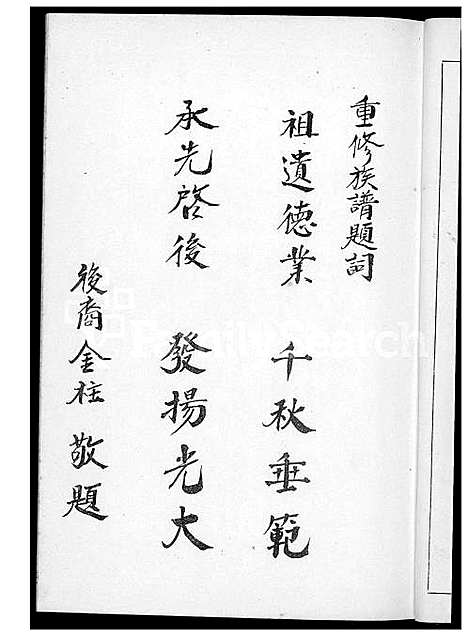 重修族譜題詞
祖遺德業 千秋垂範
承先啓後 發揚光大
後裔金柱 敬題
FamilySearch